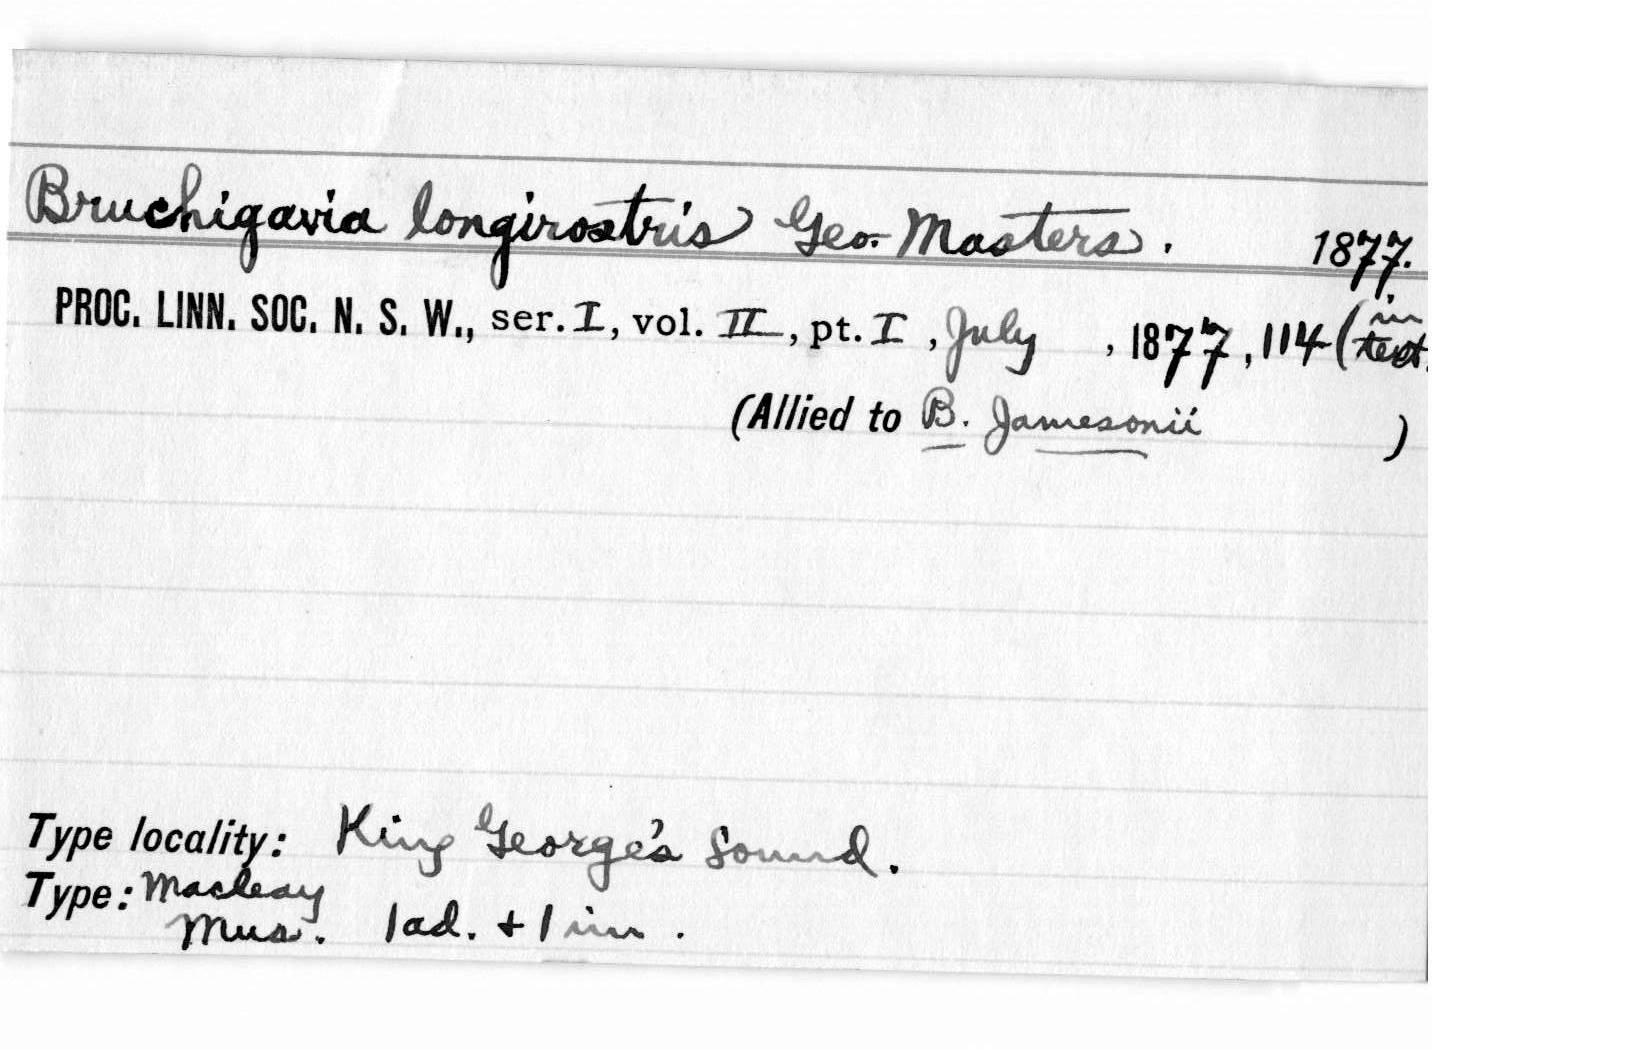 Bruchigavia longirostris Geo. Masters. 1877.
PROC. LINN. SOC. N. S. W., ser. I, vol. II, pt. I, July, 1877, 114 (in text.
(Allied to B. Jamesonii)
Type locality: King George's Sound.
Type: Macleay
Mus. 1 ad. + 1 im.